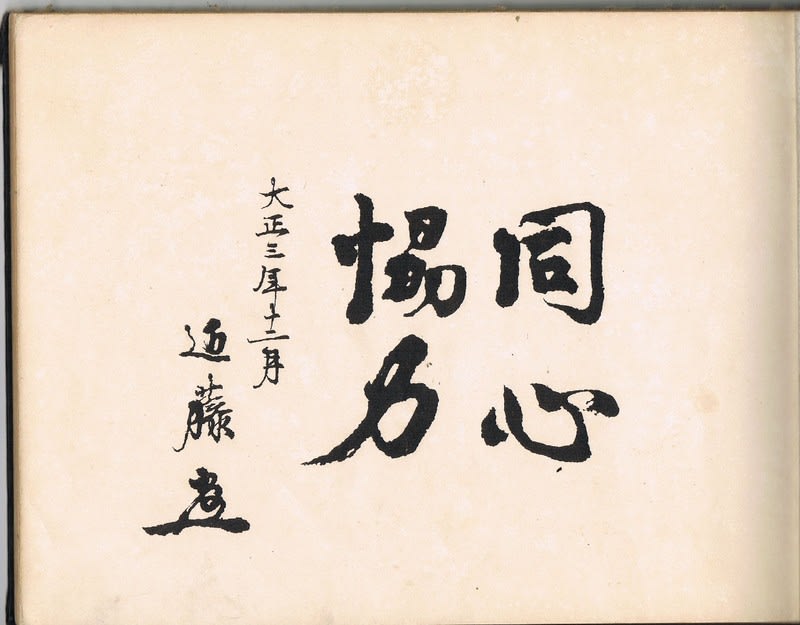 同心
恊力
大正三年十二月
近藤